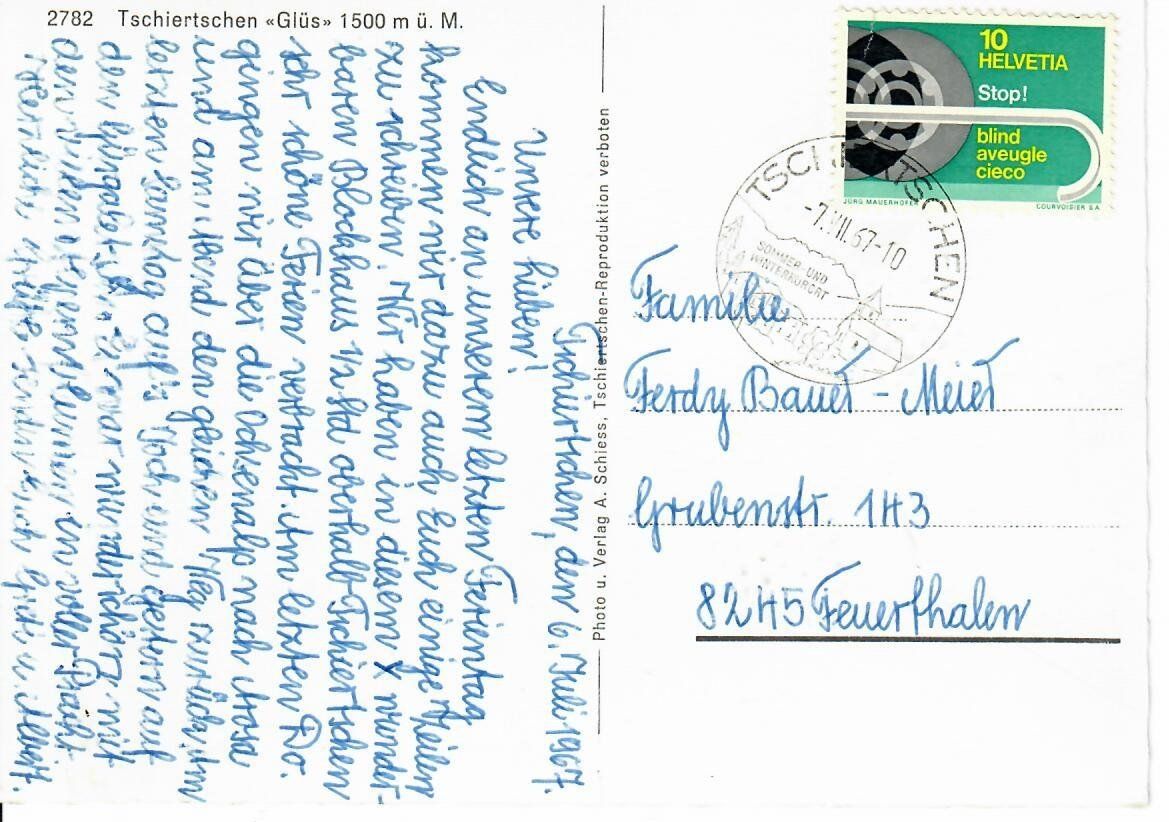 2782 Tschiertschen «Glüs» 1500 m ü. M.
Tschiertschen, den 6. Juli 1967.
Unsere Lieben!
Endlich an unserem letzten Ferientag
kommen wir dazu auch Euch einige Zeilen
zu schreiben. Wir haben in diesem x wunder-
baren Blockhaus Std oberhalb Tschiertschen
sehr schöne Ferien verbracht. Am letzten Do.
gingen wir über die Ochsenalp nach Arosa
und am Abend den gleichen Weg zurück. Am
letzten Samstag aufs Joch und gestern auf
den Es war wunderschön mit
den vielen Alpenblumen in voller Pracht
Herzlich Euch u. Albert.
Photo u. Verlag A. Schiess, Tschiertschen-Reproduktion verboten
10
HELVETIA
Stop!
blind
aveugle
cieco
JÜRG MAUERHOFER
COURVOISIER S.A.
TSCHIERTSCHEN
-7.VII.67-10
SOMMER- UND
WINTERKURORT
Familie
Ferdy Bauer - Meier
Grubenstr. 143
8245 Feuerthalen